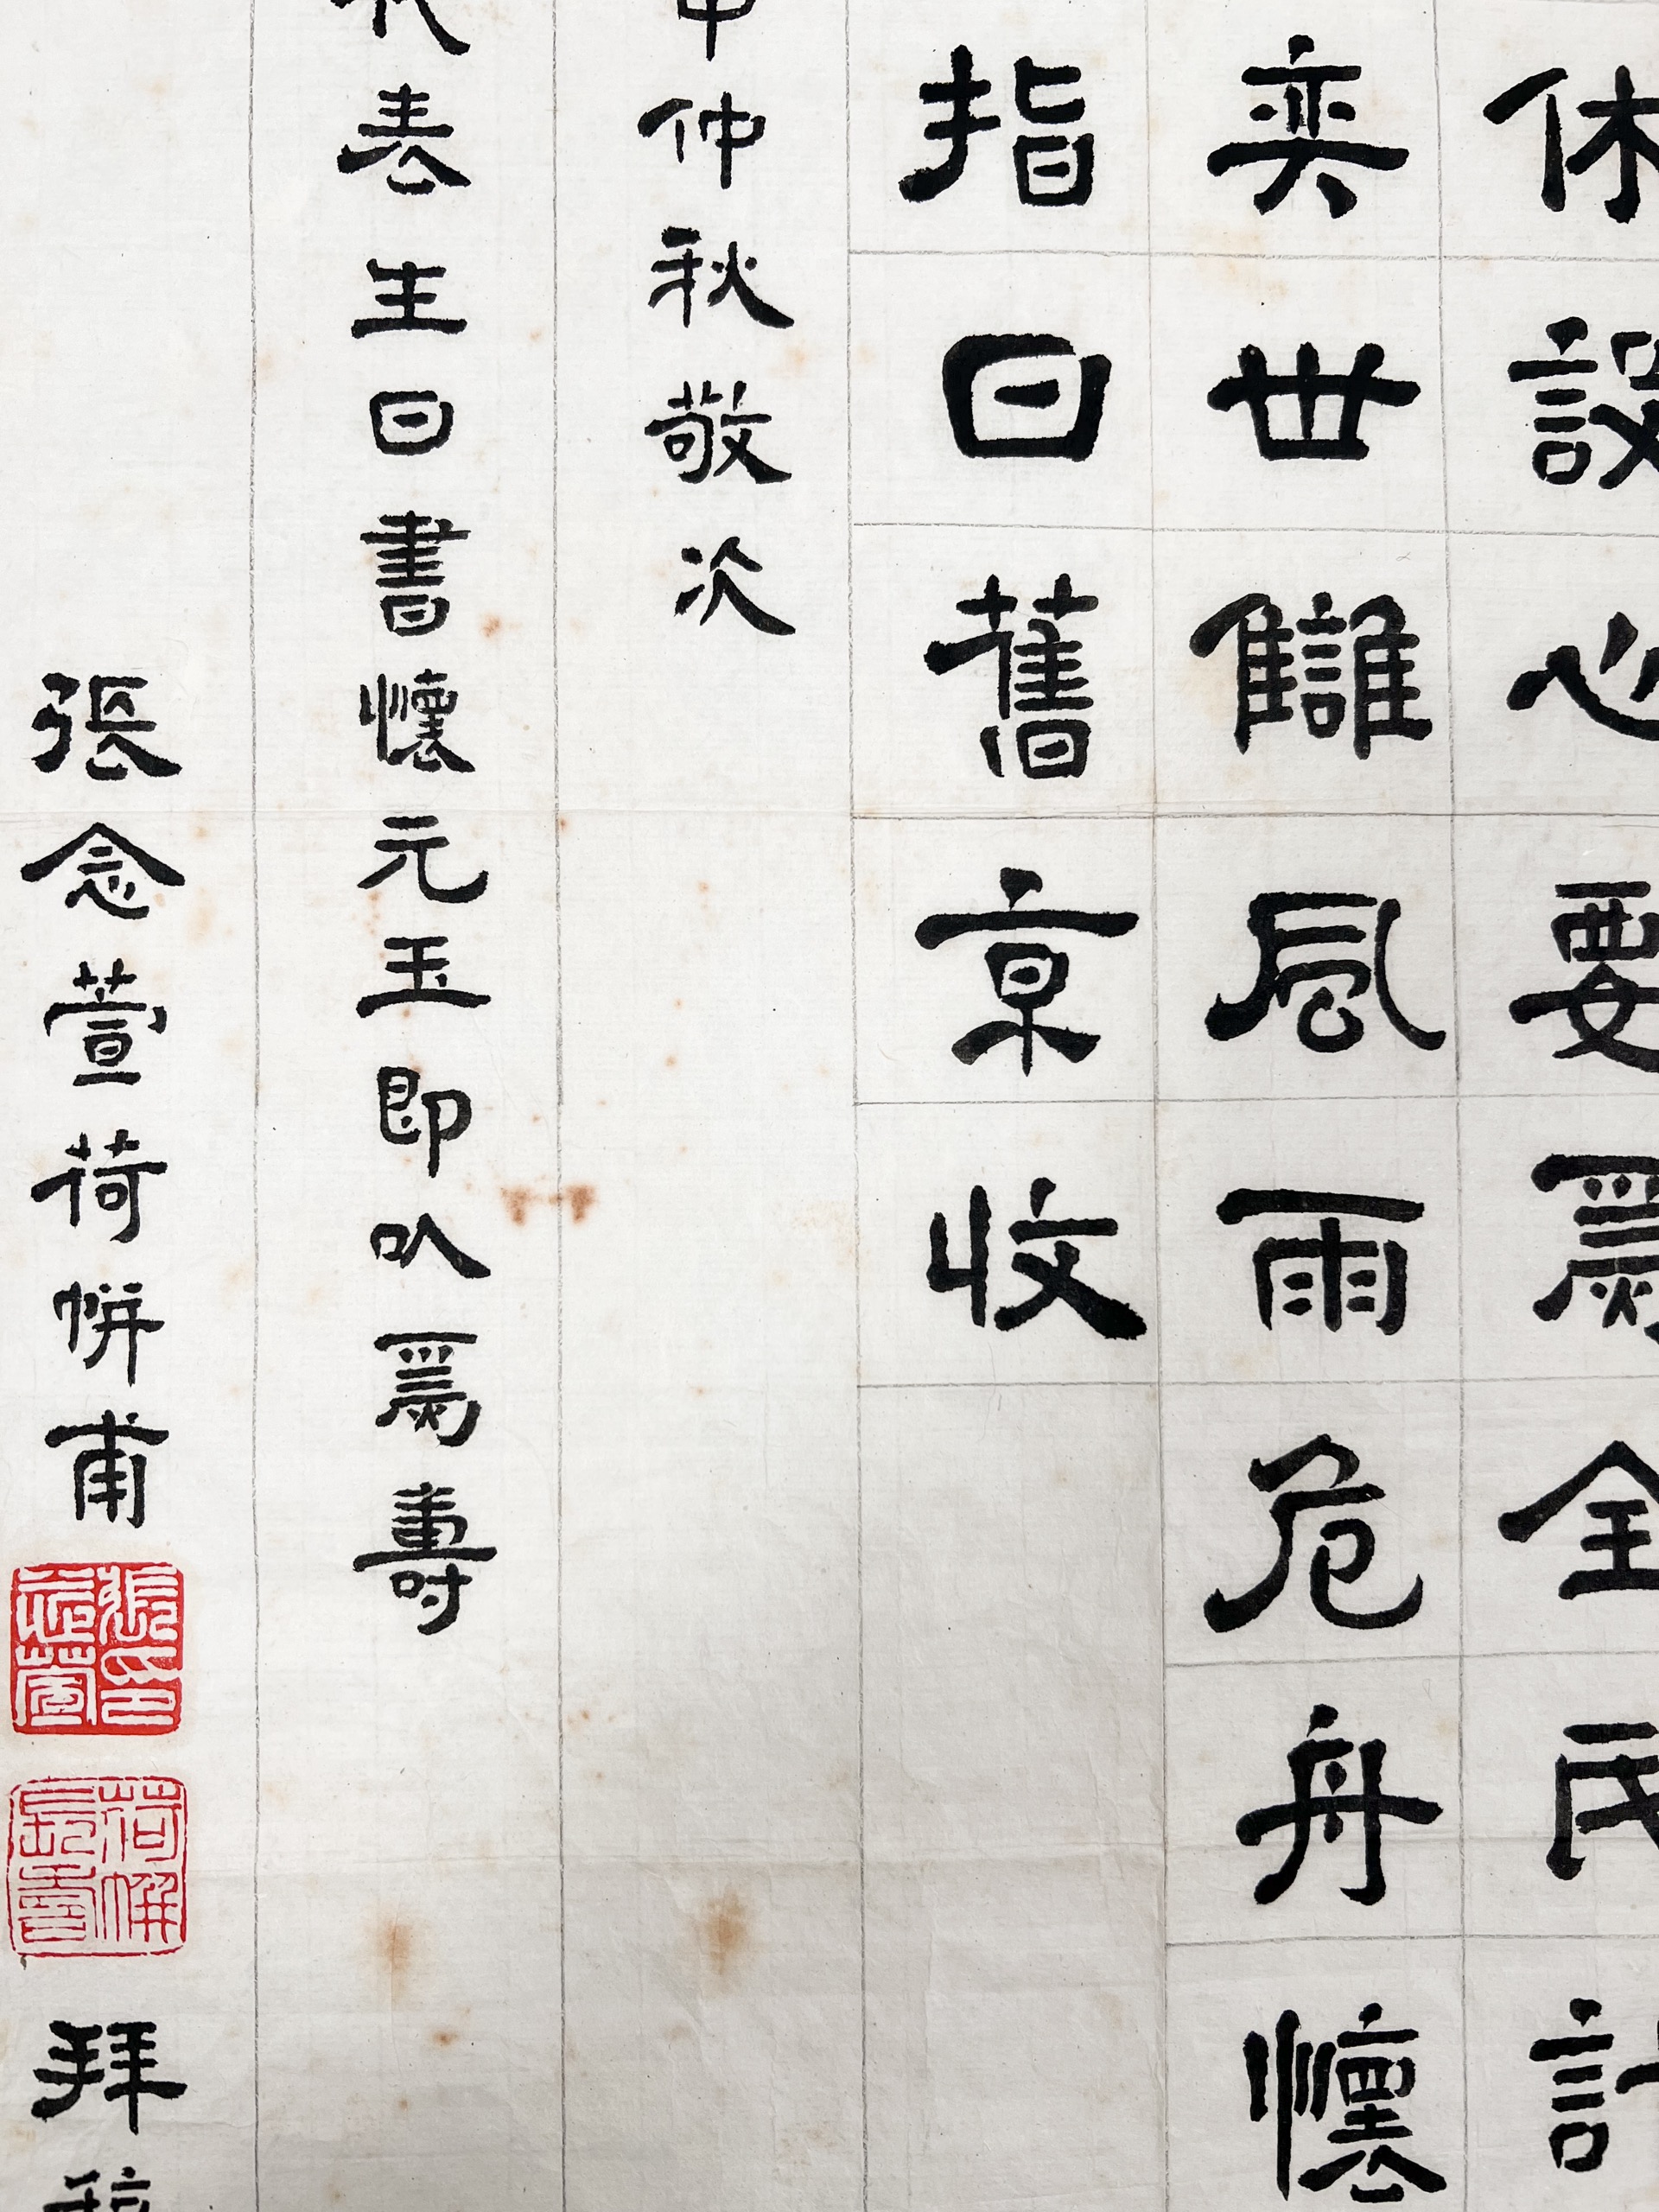 休設心要爲全民計
奕世讎風雨危舟懷
指日舊京收
仲秋敬次
老生日書懷元玉即以爲壽
張念萱荷帡甫
張念萱印
荷帡長壽
拜